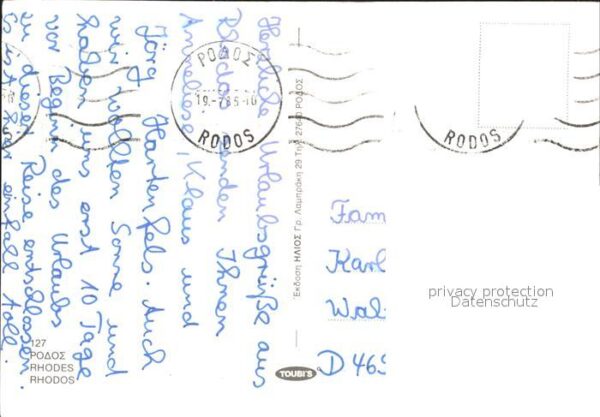 Herzliche Urlaubsgrüße aus
Rhodos senden Ihnen
Anneliese, Klaus und
Jörg Hartenfels. Auch
wir wollten Sonne und
haben uns erst 10 Tage
vor Beginn des Urlaubs
zu dieser Reise entschlossen.
Es ist hier einfach toll.
ΡΟΔΟΣ
RODOS
RODOS
Έκδοση ΗΛΙΟΣ Γρ. Λαμπράκη 29 Τηλ. 27640 ΡΟΔΟΣ
Fam
Karl
Wal
D 465
privacy protection
Datenschutz
127
ΡΟΔΟΣ
RHODES
RHODOS
TOUBI'S